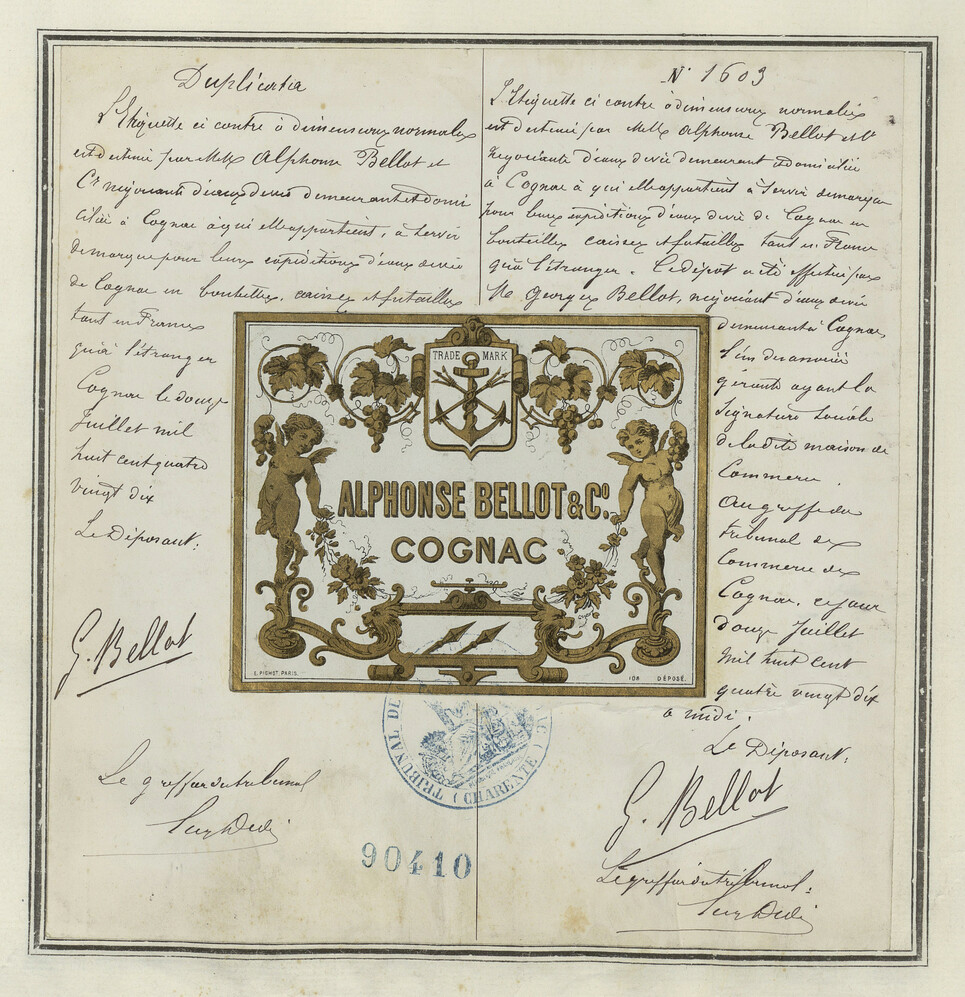 Duplicata
L'Etiquette ci contre à dimensions normales
est destinée par MM. Alphonse Bellot et
Cie négociants d'eaux de vie demeurant et domi
ciliés à Cognac à qui elle appartient, à servir
de marque pour leurs expéditions d'eaux de vie
de Cognac en bouteilles, caisses et futailles
tant en France
qu'à l'étranger
Cognac le douze
Juillet mil
huit cent quatre
vingt dix
Le Déposant:
G. Bellot
Le greffier du tribunal
N° 1603
L'Etiquette ci contre à dimensions normales
est destinée par MM. Alphonse Bellot et Cie
négociants d'eaux de vie demeurant et domiciliés
à Cognac à qui elle appartient à servir de marque
pour leurs expéditions d'eaux de vie de Cognac en
bouteilles caisses et futailles tant en France
qu'à l'étranger. Le dépôt a été effectué par
M. Georges Bellot, négociant d'eaux de vie
demeurant à Cognac,
l'un des associés
gérants ayant la
signature sociale
de la dite maison de
Commerce.
Au greffe du
tribunal de
Commerce de
Cognac, ce jour
douze Juillet
Mil huit cent
quatre vingt dix
à midi.
Le Déposant:
G. Bellot
Le greffier du tribunal:
TRADE MARK
ALPHONSE BELLOT & Co.
COGNAC
E. PICHOT PARIS.
108 DÉPOSÉ.
TRIBUNAL DE
(CHARENTE)
90410